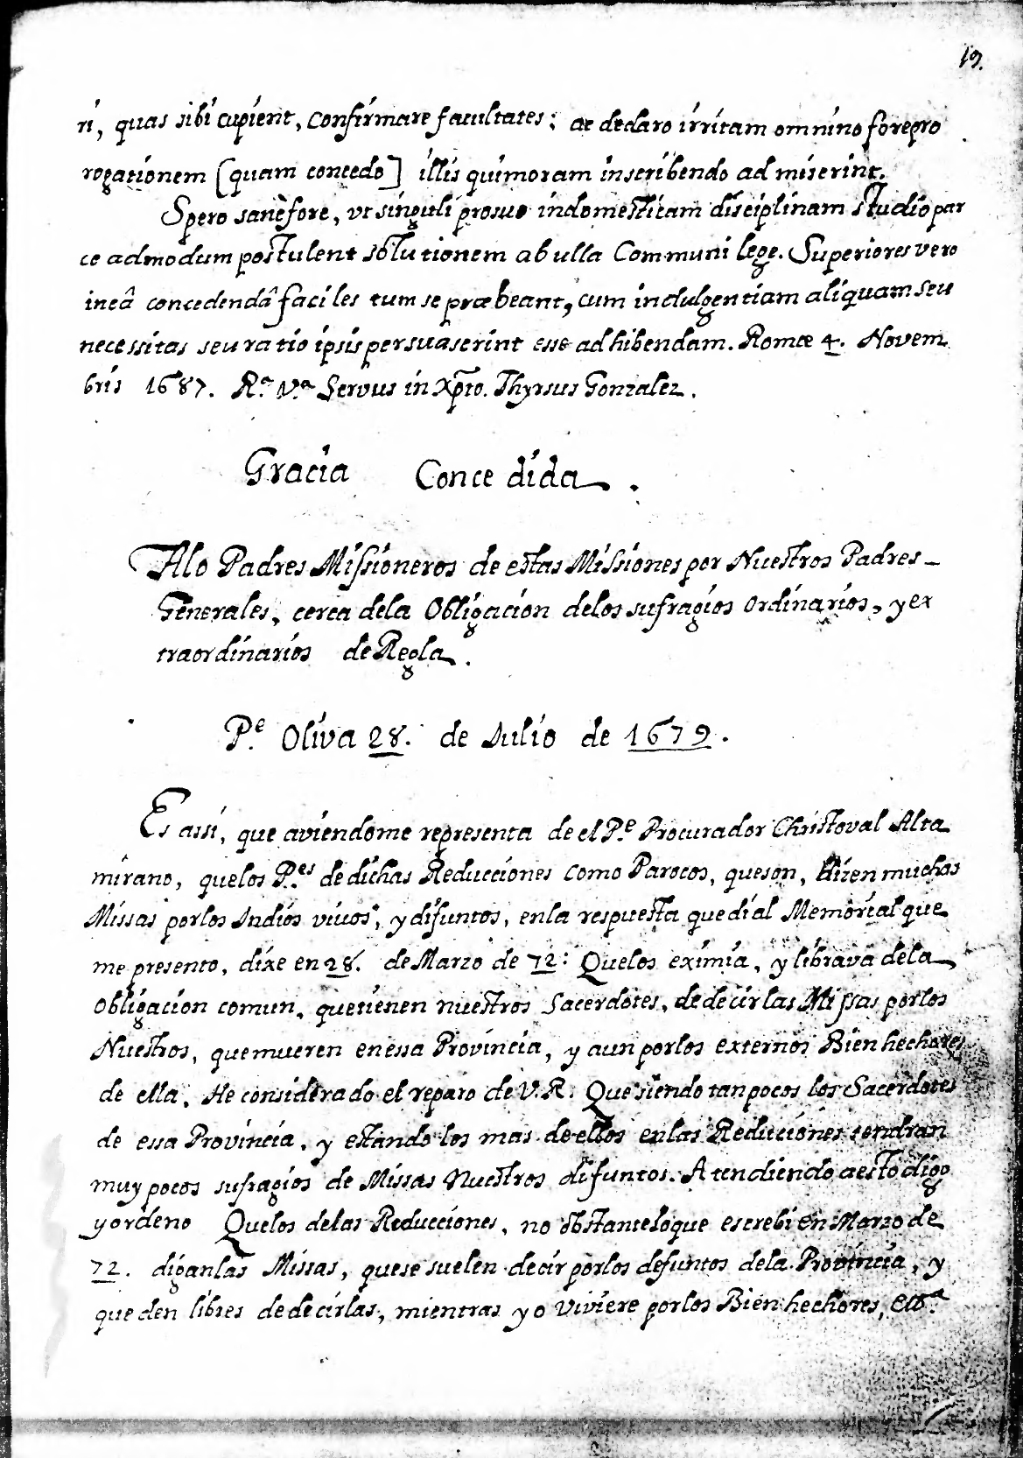 19.
ri, quas sibi cupient, confirmare facultates; ac declaro irritam omnino fore pro
rogationem [quam concedo] illis qui moram in scribendo admiserint.
Spero sanè fore, vt singuli pro suo in domesticam disciplinam studio par
ce admodum postulent solutionem ab ulla Communi lege. Superiores vero
in eâ concedendâ faciles tum se præbeant, cum indulgentiam aliquam seu
necessitas seu ratio ipsis persuaserint esse adhibendam. Romæ 4. Novem
bris 1687. Rª. Vª. Servus in Xpto. Thyrsus Gonzalez.
Gracia Concedida.
Alo Padres Missioneros de estas Missiones por Nuestros Padres
Generales, cerca dela Obligacion delos sufragios ordinarios, y ex
traordinarios de Regla.
P.e Oliva 28. de Julio de 1679.
Es assi, que aviendome representado el P.e Procurador Christoval Alta
mirano, quelos P.es de dichas Reducciones como Parocos, que son, dizen muchas
Missas por los Indios vivos, y difuntos, en la respuesta que di al Memorial que
me presento, dixe en 28. de Marzo de 72: Quelos eximia, y librava dela
obligacion comun, que tienen nuestros Sacerdotes, de decir las Missas por los
Nuestros, que mueren en essa Provincia, y aun por los externos Bien hechores
de ella. He considerado el reparo de V.R. Que siendo tan pocos los Sacerdotes
de essa Provincia, y estando los mas de ellos en las Reducciones tendran
muy pocos sufragios de Missas Nuestros difuntos. Atendiendo a esto digo
y ordeno Quelos delas Reducciones, no obstante lo que escrebi en Marzo de
72. digan las Missas, que se suelen decir por los defuntos dela Provincia, y
queden libres de decirlas, mientras yo viviere por los Bien hechores, &ª